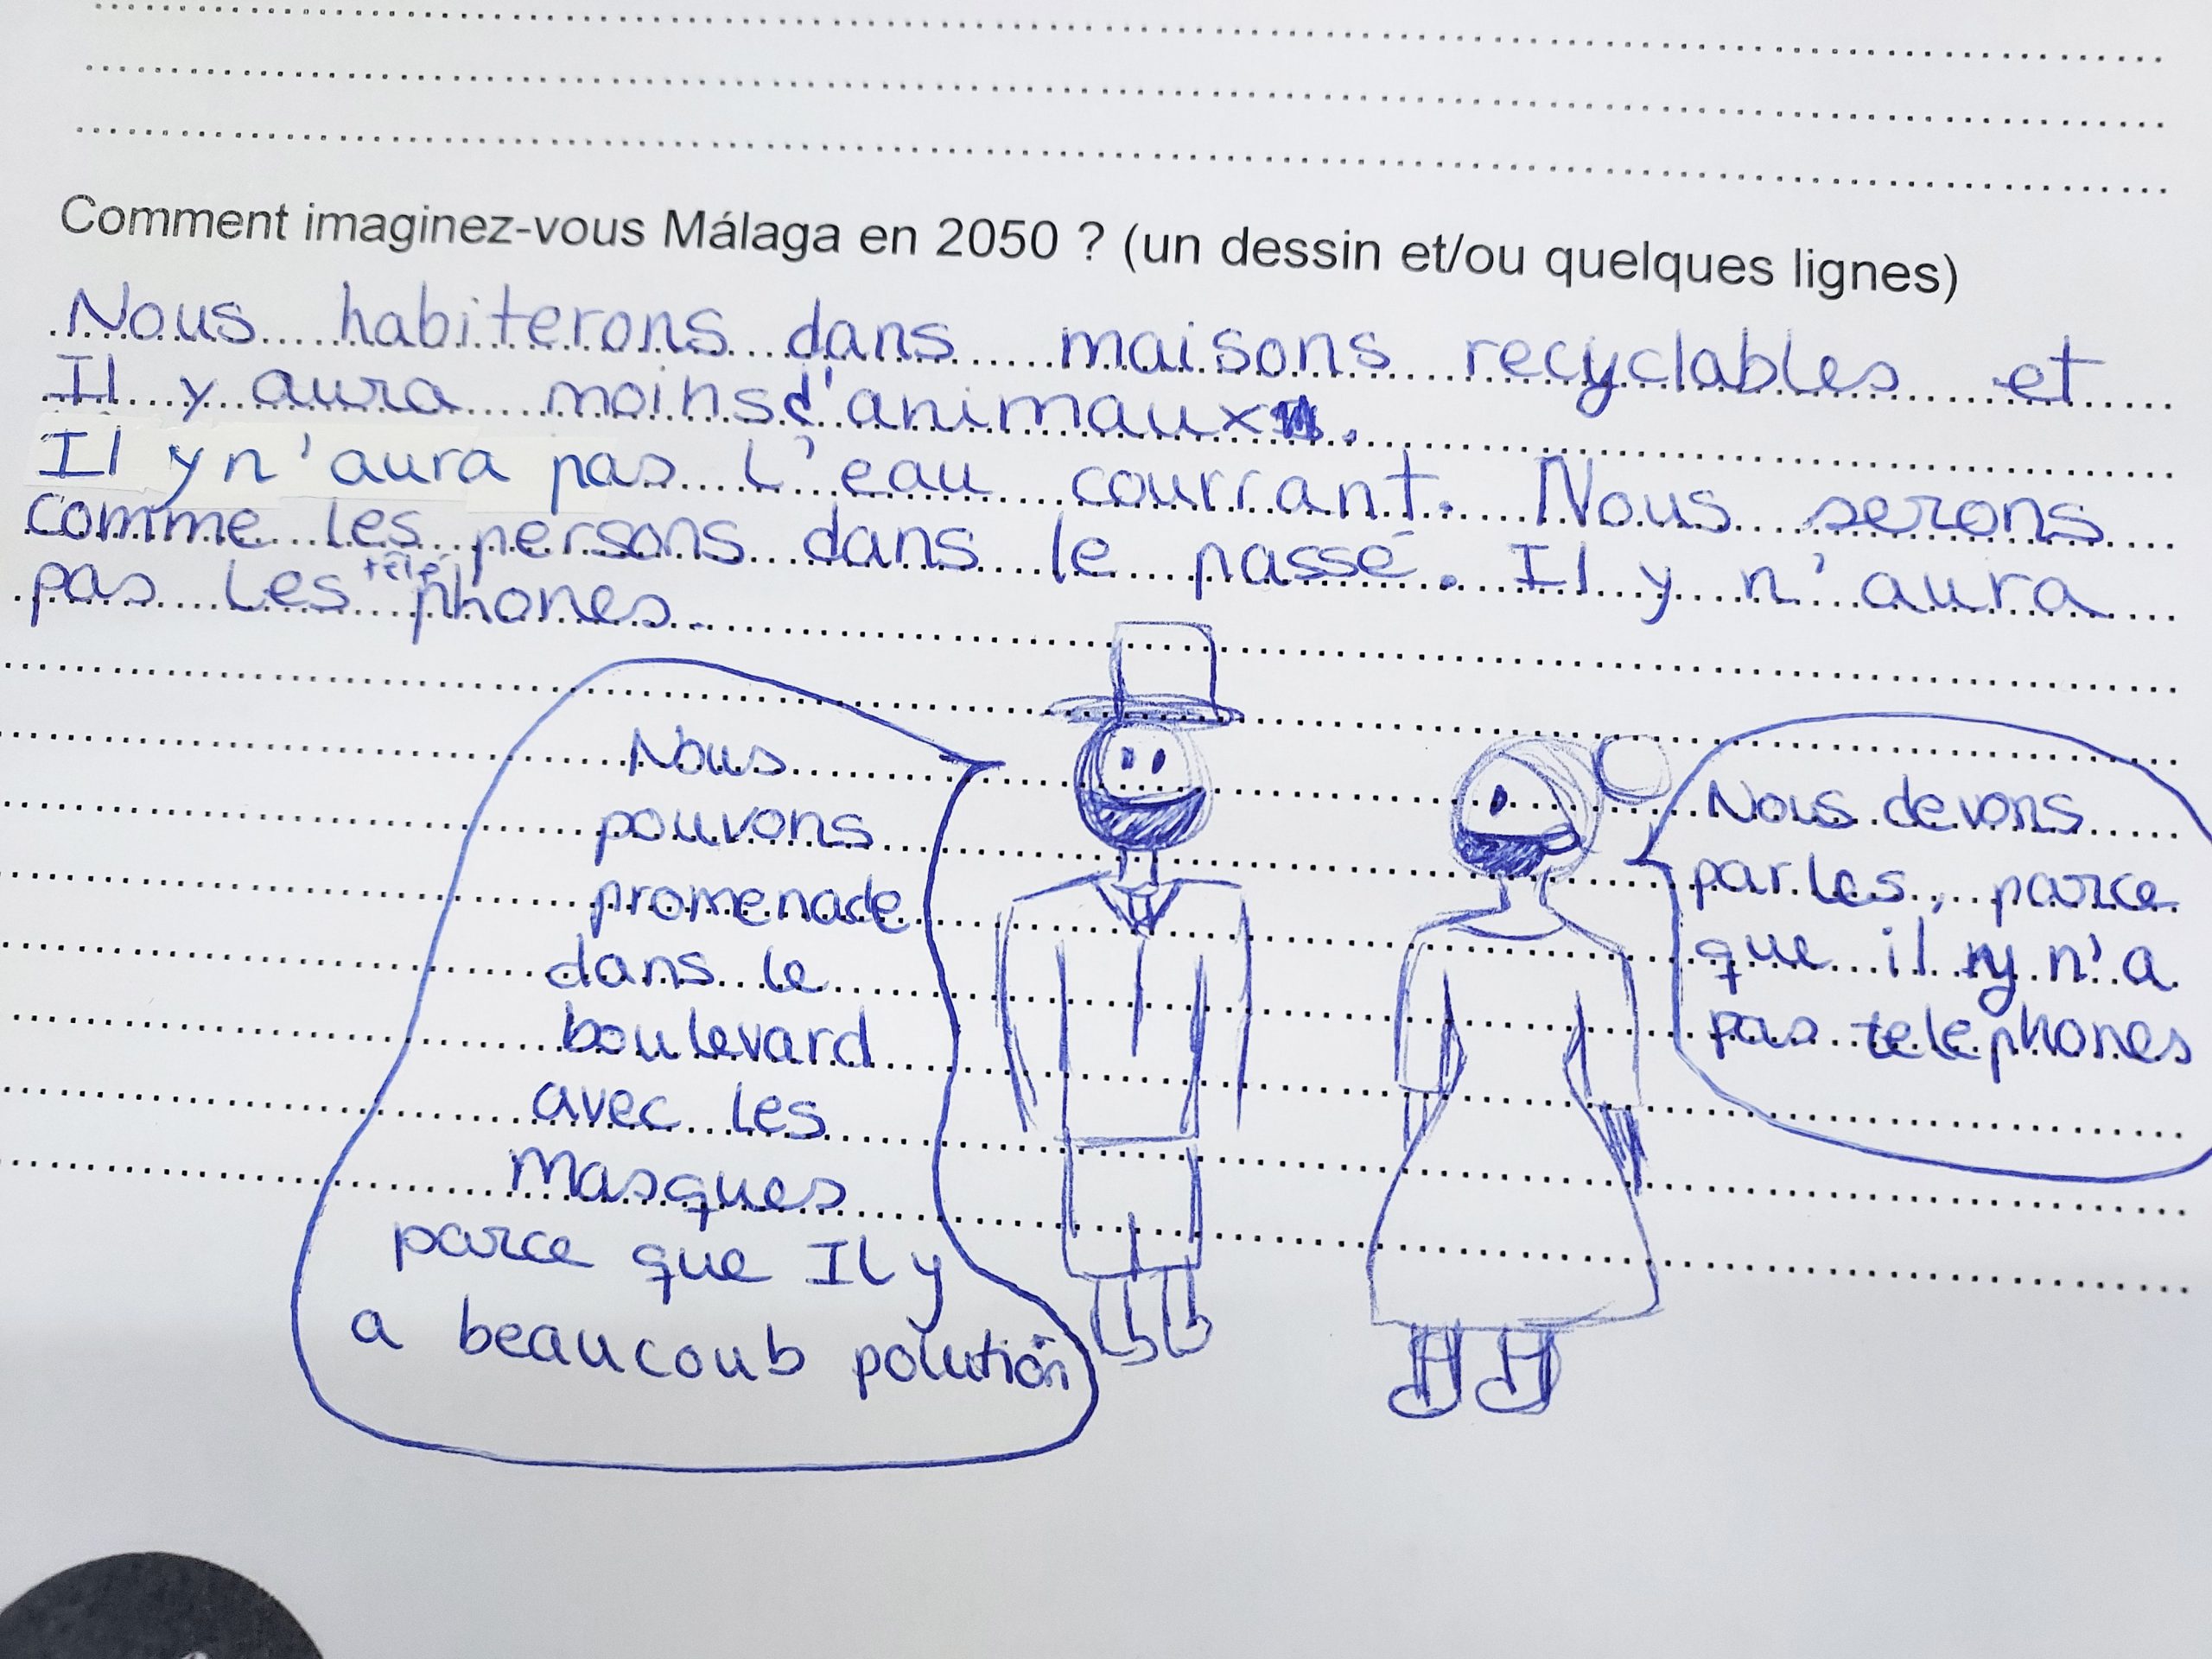 Comment imaginez-vous Málaga en 2050 ? (un dessin et/ou quelques lignes)
Nous habiterons dans maisons recyclables et
Il y aura moins d'animaux.
Il y n'aura pas l'eau courrant. Nous serons
comme les persons dans le passé. Il y n'aura
pas les téléphones.
Nous
pouvons
promenade
dans le
boulevard
avec les
masques
parce que Il y
a beaucoub polution
Nous devons
parles, parce
que il y n'a
pas telephones